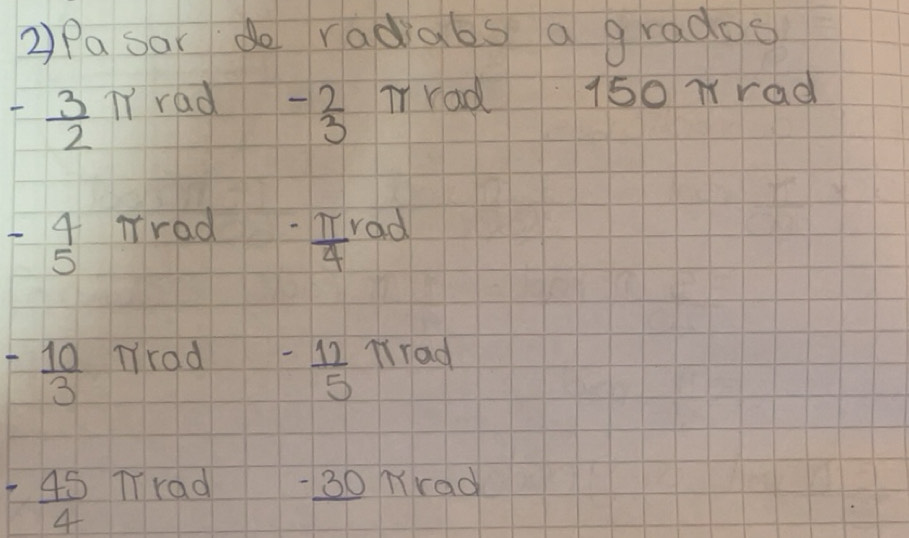 2) Pasar de radiabs a grados
- 3/2 π rad - 2/3 π rad 150 π rad
- 4/5 π rad - π/4 rad
- 10/3 π rad - 12/5 π rad
- 45/4 π rad - 30 π rad